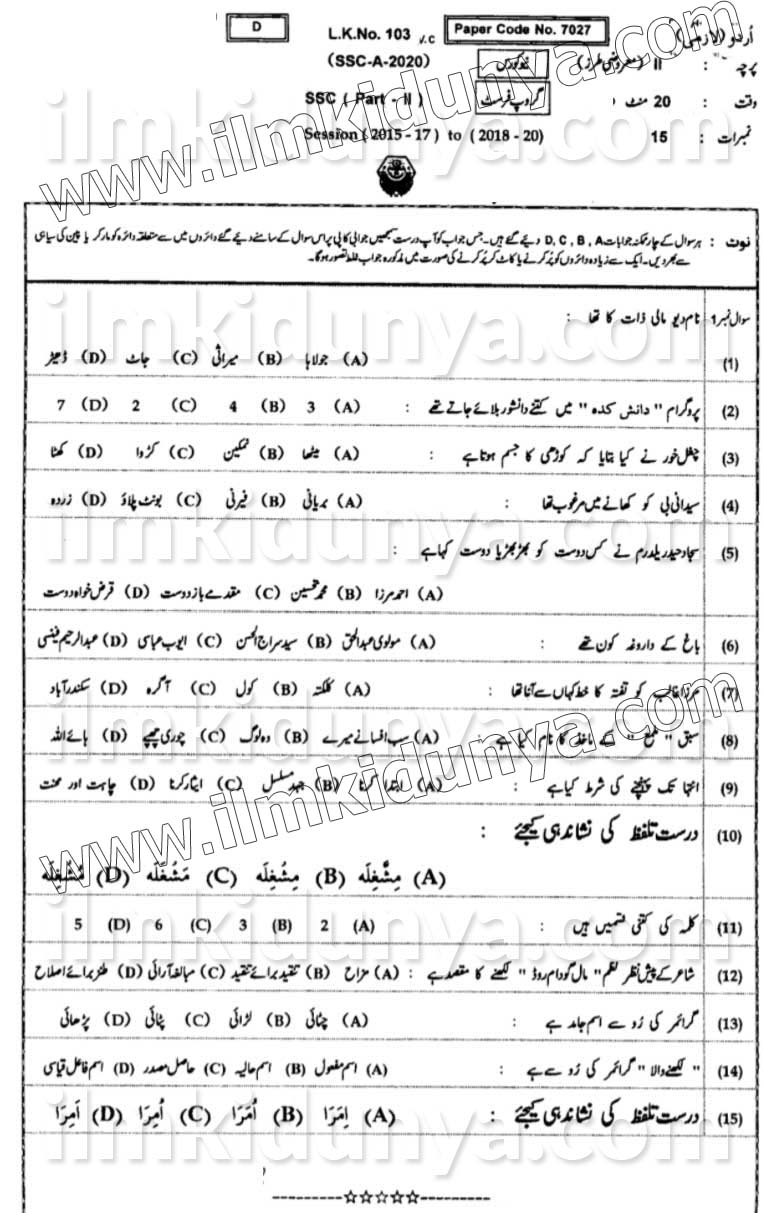 D
L.K.No. 103
Paper Code No. 7027
اُردو (لازمی)
(SSC-A-2020)
پرچہ : II (معروضی طرز)
نیوکورس
SSC ( Part - II )
گروپ فرسٹ
وقت : 20 منٹ
Session ( 2015 - 17 ) to ( 2018 - 20)
نمبرات : 15
نوٹ : ہر سوال کے چار ممکنہ جوابات D, C, B, A دیئے گئے ہیں۔ جس جواب کو آپ درست سمجھیں جوابی کاپی پر اس سوال کے سامنے دیئے گئے دائروں میں سے متعلقہ دائرہ کو مارکر یا پین کی سیاہی
سے بھر دیں۔ ایک سے زیادہ دائروں کو پُر کرنے یا کاٹ کر پُر کرنے کی صورت میں مذکورہ جواب غلط تصور ہوگا۔
سوال نمبر 1 نام دیو مالی ذات کا تھا :
(1) (A) جولاہا (B) میراثی (C) جاٹ (D) ڈھیڑ
(2) پروگرام "دانش کدہ" میں کتنے دانشور بلائے جاتے تھے : (A) 3 (B) 4 (C) 2 (D) 7
(3) چغل خور نے کیا بتایا کہ کوڑھی کا جسم ہوتا ہے : (A) میٹھا (B) نمکین (C) کڑوا (D) کھٹا
(4) سیدانی بی کو کھانے میں مرغوب تھا : (A) بریانی (B) فیرنی (C) بونٹ پلاؤ (D) زردہ
(5) سجاد حیدر یلدرم نے کس دوست کو بھڑبھڑیا دوست کہا ہے :
(A) احمد مرزا (B) محمد تحسین (C) مقدمے باز دوست (D) قرض خواہ دوست
(6) باغ کے داروغہ کون تھے : (A) مولوی عبدالحق (B) سید سراج الحسن (C) ایوب عباسی (D) عبدالرحیم فینسی
(7) مرزا غالب کو تفتہ کا خط کہاں سے آنا تھا : (A) کلکتہ (B) کول (C) آگرہ (D) سکندر آباد
(8) سبق "ملمع" کے ماخذ کا نام کیا ہے : (A) سب افسانے میرے (B) وہ لوگ (C) چوری چھپے (D) ہائے اللہ
(9) انتہا تک پہنچنے کی شرط کیا ہے : (A) ابتدا کرنا (B) جہدِ مسلسل (C) ایثار کرنا (D) چاہت اور محنت
(10) درست تلفظ کی نشاندہی کیجئے :
(A) مِشَّغِلَہ (B) مِشُغِلَہ (C) مَشُغَلَہ (D) مُشُغِلَہ
(11) کلمہ کی کتنی قسمیں ہیں : (A) 2 (B) 3 (C) 6 (D) 5
(12) شاعر کے پیش نظر نظم "مال گودام روڈ" لکھنے کا مقصد ہے : (A) مزاح (B) تنقید برائے تنقید (C) مبالغہ آرائی (D) طنز برائے اصلاح
(13) گرائمر کی رُو سے اسم جامد ہے : (A) چٹائی (B) لڑائی (C) پٹائی (D) پڑھائی
(14) "لکھنے والا" گرائمر کی رُو سے ہے : (A) اسم مفعول (B) اسم حالیہ (C) حاصل مصدر (D) اسم فاعل قیاسی
(15) درست تلفظ کی نشاندہی کیجئے : (A) اِمَرَا (B) اُمَرَا (C) اُمِرَا (D) اَمِرَا
---------☆☆☆☆☆---------
www.ilmkidunya.com